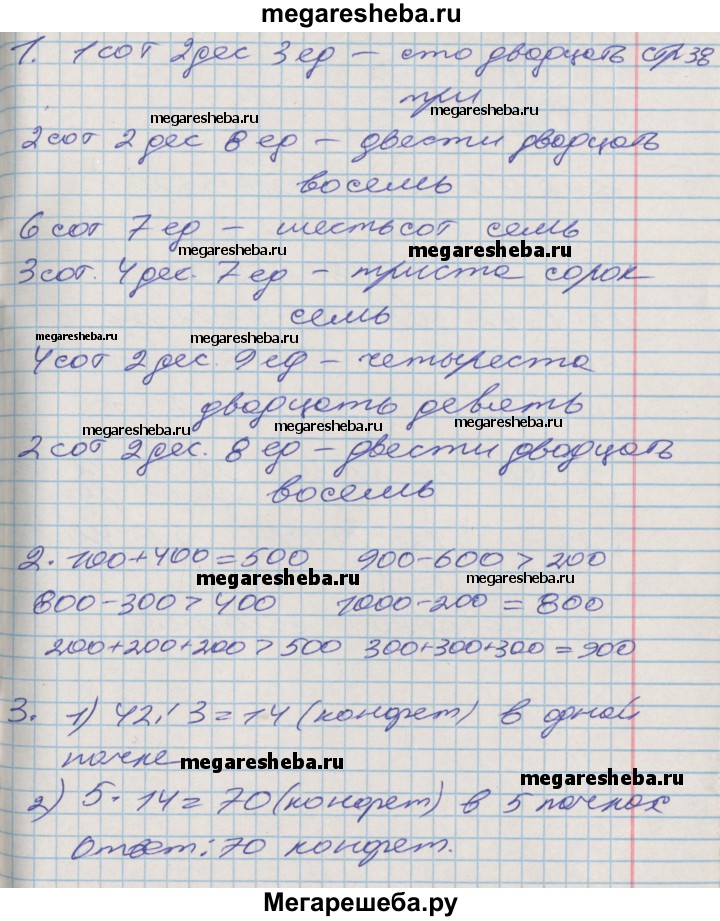 megaresheba.ru
1. 1 сот 2 дес 3 ед – сто двадцать стр 38
три
megaresheba.ru megaresheba.ru
2 сот 2 дес 8 ед – двести двадцать
восемь
6 сот 7 ед – шестьсот семь
megaresheba.ru megaresheba.ru
3 сот. 4 дес. 7 ед – триста сорок
семь
megaresheba.ru megaresheba.ru
4 сот 2 дес. 9 ед – четыреста
двадцать девять
megaresheba.ru megaresheba.ru
2 сот 2 дес. 8 ед – двести двадцать
восемь
2. 100+400=500 900-600>200
megaresheba.ru megaresheba.ru
800-300>400 1000-200=800
200+200+200>500 300+300+300=900
3. 1) 42:3=14 (конфет) в одной
пачке
megaresheba.ru megaresheba.ru
2) 5·14=70 (конфет) в 5 пачках
Ответ: 70 конфет.
Мегарешеба.ру